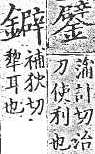 鐾
蒲計切治
刀使利也
鐴
補狄切
犂耳也